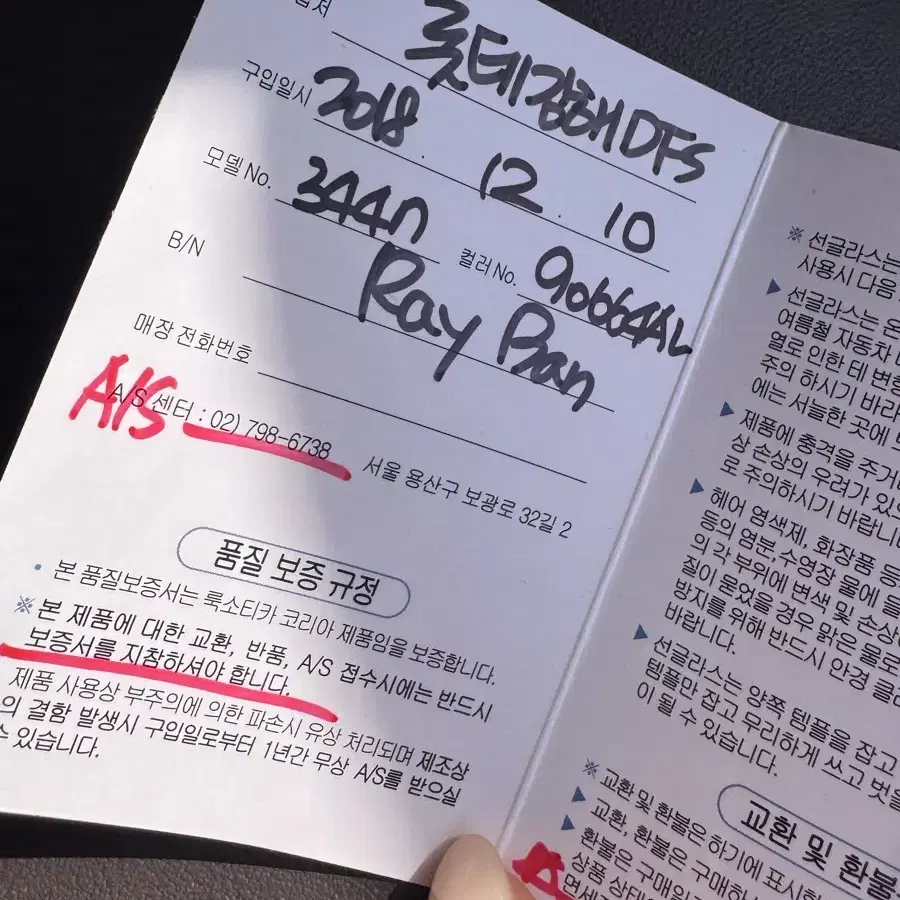 입처 롯데김해DFS
구입일시 2018. 12. 10
모델 No. 3447 컬러 No. 90664AL
B/N Ray Ban
매장 전화번호
A/S
A/S 센터 : 02) 798-6738
서울 용산구 보광로 32길 2
품질 보증 규정
• 본 품질보증서는 룩소티카 코리아 제품임을 보증합니다.
※ 본 제품에 대한 교환, 반품, A/S 접수시에는 반드시
보증서를 지참하셔야 합니다.
제품 사용상 부주의에 의한 파손시 유상 처리되며 제조상
의 결함 발생시 구입일로부터 1년간 무상 A/S를 받으실
수 있습니다.
※ 선글라스는
사용시 다음
▶ 선글라스는 온
여름철 자동차
열로 인한 테 변형
주의 하시기 바라
에는 서늘한 곳에
▶ 제품에 충격을 주거
상 손상의 우려가 있
로 주의하시기 바랍니
▶ 헤어 염색제, 화장품 등
등의 염분 수영장 물에
의 각 부위에 변색 및 손상
질이 묻었을 경우 맑은 물로
방지를 위해 반드시 안경 클
바랍니다.
▶ 선글라스는 양쪽 템플을 잡고
템플만 잡고 무리하게 쓰고 벗을
이 될 수 있습니다.
교환 및 환불
※ 교환 및 환불은 하기에 표시
▶ 교환, 환불은 구매하
▶ 환불은 구매일
상품 상태
면세